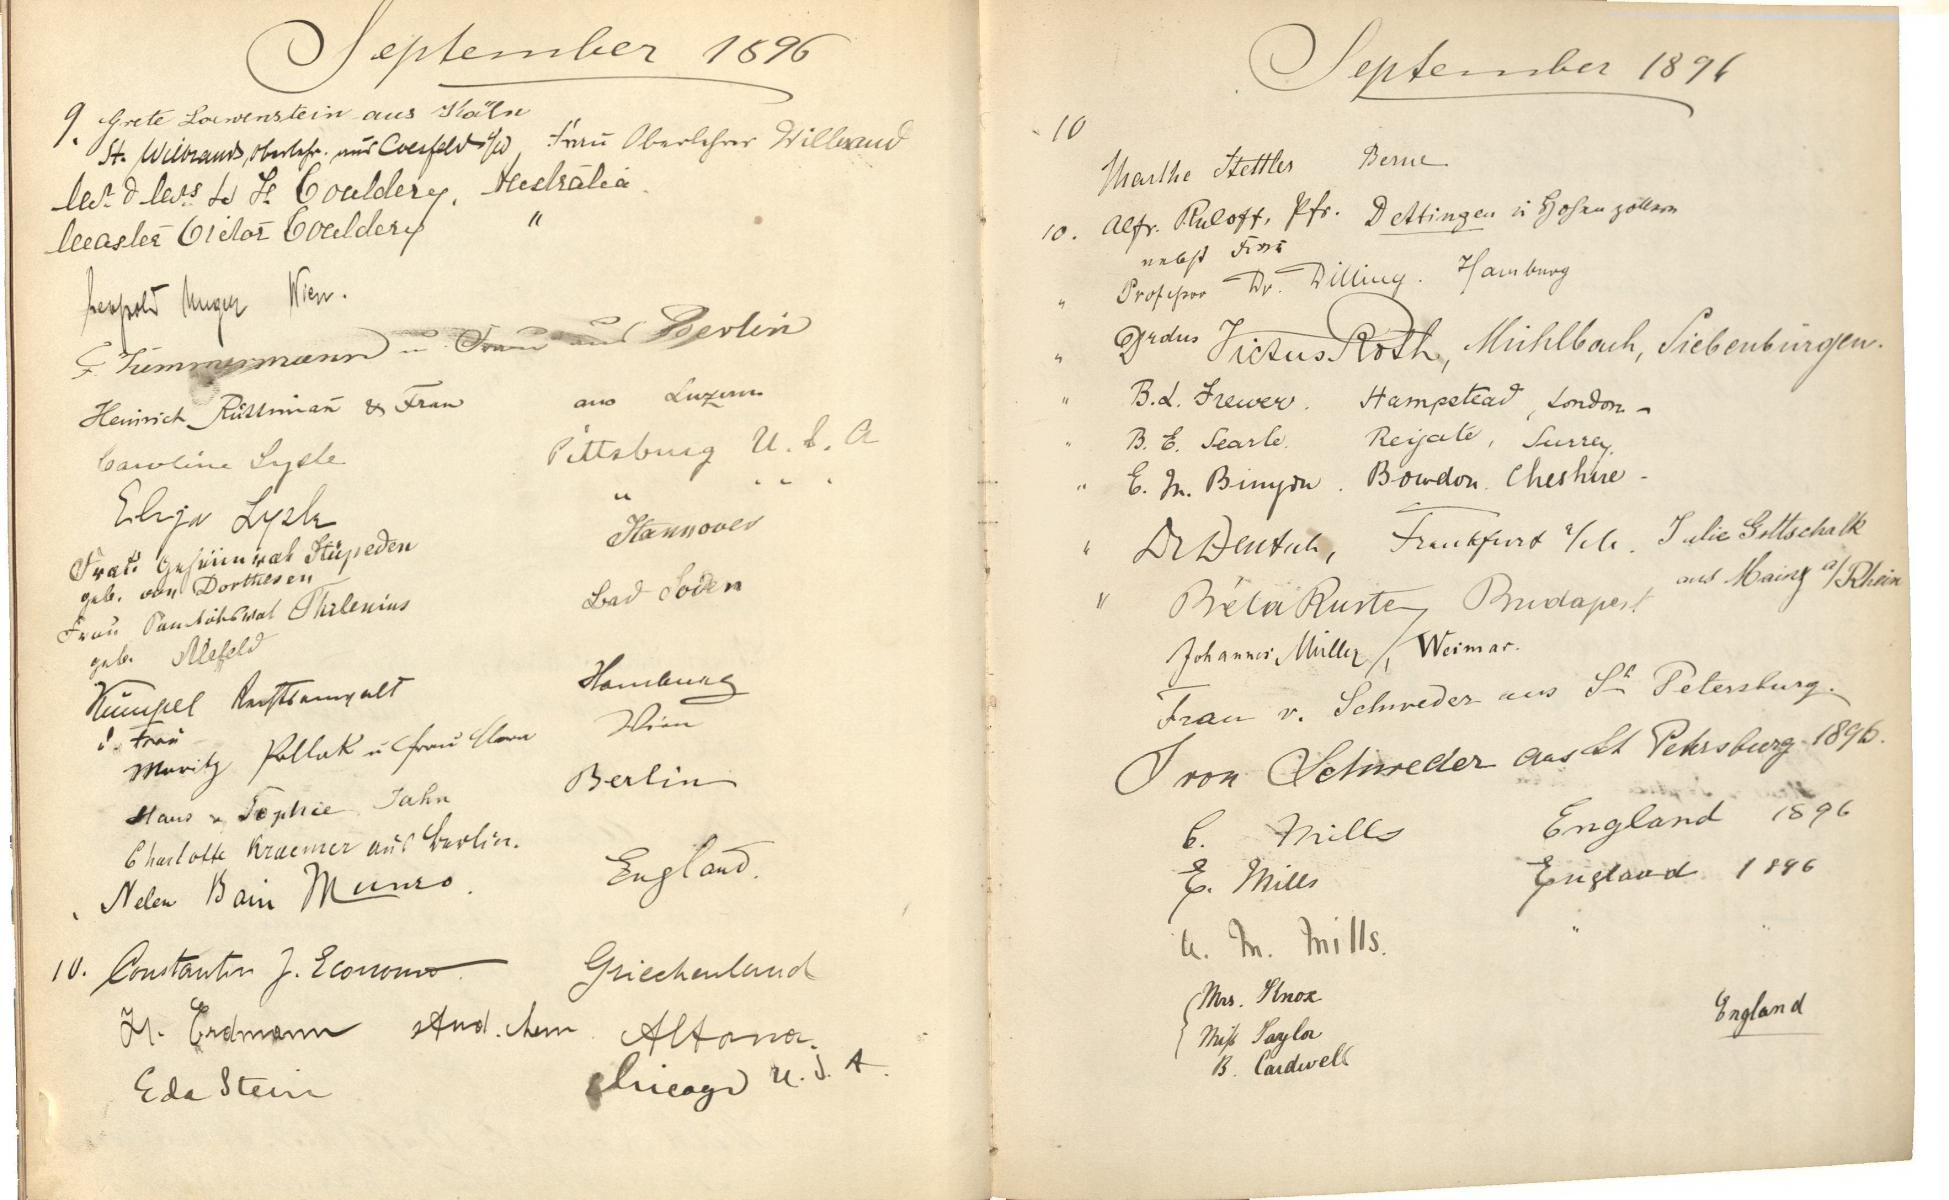 September 1896
9. Grete Loewenstein aus Köln
St. Wilbrand, Oberlehr. aus Coesfeld i/W, Frau Oberlehrer Wilbrand
Mr. & Mrs Couldery, Australia.
Master Victor Couldery "
Leopold Unger Wien.
F. Zimmermann u. Frau aus Berlin
Heinrich Rüttimann & Frau aus Luzern
Caroline Lysle Pittsburg U. S. A
Eliza Lysle " " " "
Frau Geheimrat Stüpeden Hannover
geb. von Dorthesen
Frau Sanitätsrat Thilenius Bad Soden
geb. Alefeld
Kümpel Rechtsanwalt Hamburg
u. Frau
Moritz Pollak u Frau Clara Wien
Hans u. Sophie Jahn Berlin
Charlotte Kraemer aus Berlin.
Helen Bain Munro. England.
10. Constantin J. Economo Griechenland
H. Erdmann stud. chem Altona.
Eda Stein Chicago U. S. A.
September 1896
10
Marthe Stettler Berne
10. Alfr. Ruloff, Pfr. Dettingen i Hohenzollern
nebst Frau
" Professor Dr. Dilling. Hamburg
" Drdus Victus Roth, Mühlbach, Siebenbürgen.
" B. L. Frewer. Hampstead, London -
" B. E. Searle. Reigate, Surrey.
" E. M. Binyon. Bowdon. Cheshire -
" Dr Deutsch, Frankfurt a/M. Julie Gottschalk
aus Mainz a/Rhein
" Béla Budapest
Johannes Müller, Weimar.
Frau v. Schroeder aus St Petersburg.
J von Schroeder aus St Petersburg 1896.
C. Mills England 1896
E. Mills England 1896
A. M. Mills. " "
Mrs. Knox
Miss Taylor England
B. Cardwell